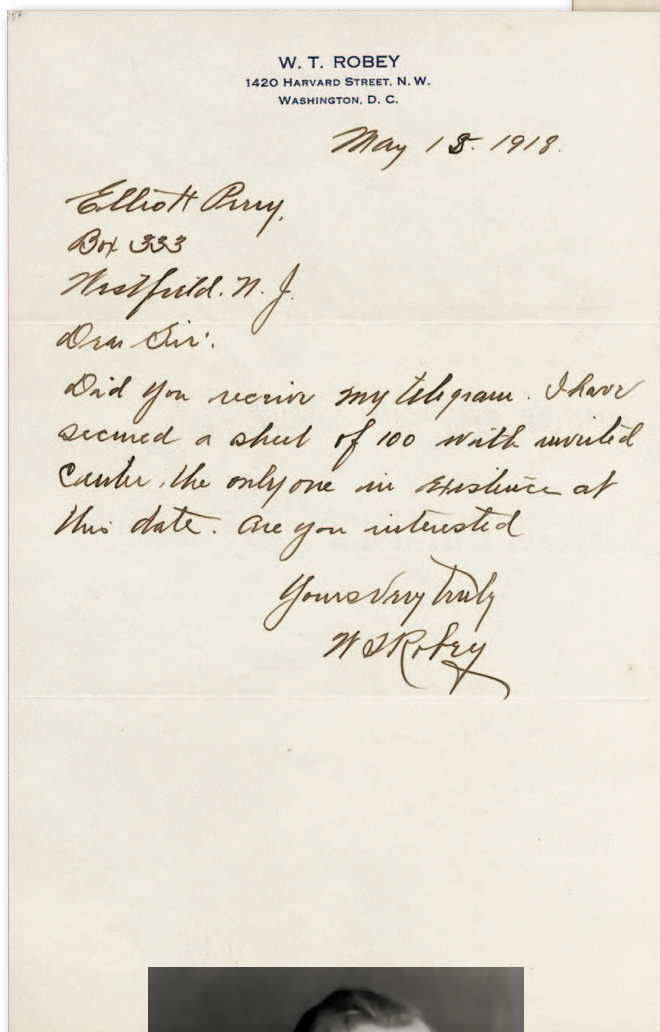 W. T. ROBEY
1420 HARVARD STREET, N. W.
WASHINGTON, D. C.
May 15. 1918.
Elliott Perry.
Box 333
Westfield. N. J.
Dear Sir:
Did you receive my telegram. I have
secured a sheet of 100 with inverted
center, the only one in existence at
this date. Are you interested
Yours Very Truly
W T Robey